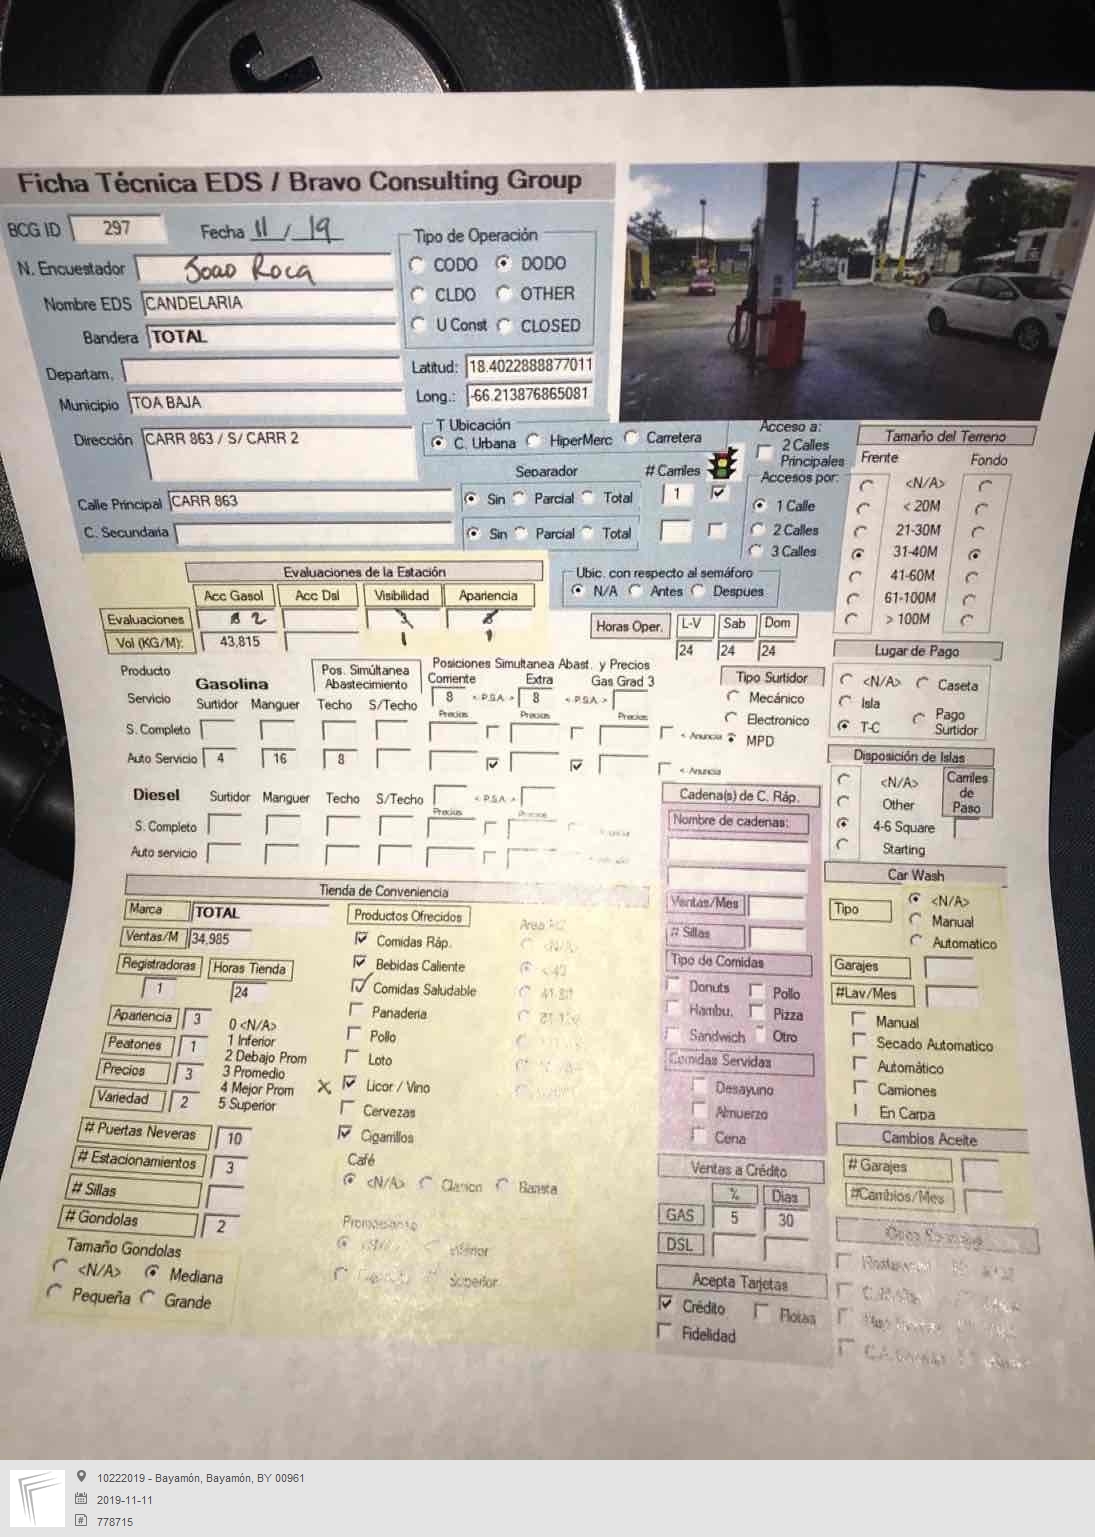 Ficha Técnica EDS / Bravo Consulting Group
BCG ID 297 Fecha 11 / 19
N. Encuestador Joao Roca
Nombre EDS CANDELARIA
Bandera TOTAL
Departam.
Municipio TOA BAJA
Dirección CARR 863 / S/ CARR 2
Calle Principal CARR 863
C. Secundaria
Tipo de Operación
CODO DODO
CLDO OTHER
U Const CLOSED
Latitud: 18.4022888877011
Long.: -66.213876865081
T Ubicación
C. Urbana HiperMerc Carretera
Separador # Carriles
Sin Parcial Total 1
Sin Parcial Total
Acceso a:
2 Calles
Principales
Accesos por:
1 Calle
2 Calles
3 Calles
Ubic. con respecto al semáforo
N/A Antes Despues
Tamaño del Terreno
Frente Fondo
<N/A>
< 20M
21-30M
31-40M
41-60M
61-100M
> 100M
Evaluaciones de la Estación
Acc Gasol Acc Dsl Visibilidad Apariencia
Evaluaciones 2 3
Vol (KG/M): 43,815 1 1
Horas Oper. L-V Sab Dom
24 24 24
Lugar de Pago
<N/A> Caseta
Isla
T-C Pago
Surtidor
Producto Pos. Simúltanea
Abastecimiento
Posiciones Simultanea Abast. y Precios
Servicio Gasolina Corriente Extra Gas Grad 3
Surtidor Manguer Techo S/Techo 8 < P.S.A. > 8 < P.S.A. >
Precios Precios Precios
S. Completo < Anuncia
Auto Servicio 4 16 8
< Anuncia
Tipo Surtidor
Mecánico
Electronico
MPD
Disposición de Islas
<N/A>
Other
4-6 Square
Starting
Carriles
de
Paso
Diesel Surtidor Manguer Techo S/Techo < P.S.A. >
Precios Precios
S. Completo
Auto servicio
Tienda de Conveniencia
Marca TOTAL
Ventas/M 34,985
Registradoras Horas Tienda
1 24
Apariencia 3
Peatones 1
Precios 3
Variedad 2
0 <N/A>
1 Inferior
2 Debajo Prom
3 Promedio
4 Mejor Prom
5 Superior
# Puertas Neveras 10
# Estacionamientos 3
# Sillas
# Gondolas 2
Tamaño Gondolas
<N/A> Mediana
Pequeña Grande
Productos Ofrecidos
Comidas Ráp.
Bebidas Caliente
Comidas Saludable
Panaderia
Pollo
Loto
X Licor / Vino
Cervezas
Cigarrillos
Café
<N/A> Clasico Barista
Superior
Cadena(s) de C. Ráp.
Nombre de cadenas:
Ventas/Mes
# Sillas
Tipo de Comidas
Donuts Pollo
Hambu. Pizza
Sandwich Otro
Comidas Servidas
Desayuno
Almuerzo
Cena
Ventas a Crédito
% Dias
GAS 5 30
DSL
Acepta Tarjetas
Crédito Flotas
Fidelidad
Car Wash
Tipo <N/A>
Manual
Automatico
Garajes
#Lav/Mes
Manual
Secado Automatico
Automático
Camiones
En Carpa
Cambios Aceite
# Garajes
#Cambios/Mes
10222019 - Bayamón, Bayamón, BY 00961
2019-11-11
778715